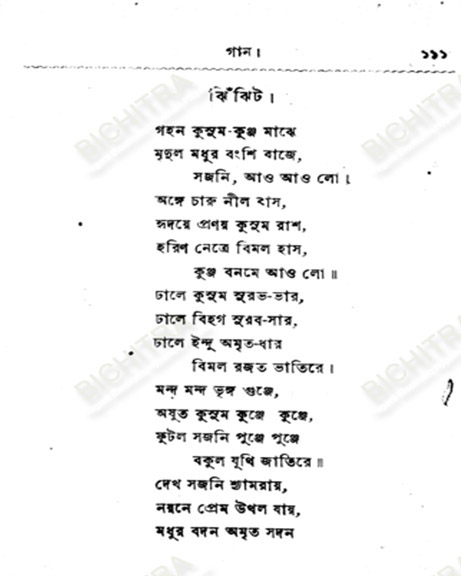 গান।
১১১
ঝিঁঝিট।
গহন কুসুম-কুঞ্জ মাঝে
মৃদুল মধুর বংশি বাজে,
সজনি, আও আও লো।
অঙ্গে চারু নীল বাস,
হৃদয়ে প্রণয় কুসুম রাশ,
হরিণ নেত্রে বিমল হাস,
কুঞ্জ বনমে আও লো॥
ঢালে কুসুম সুরভ-ভার,
ঢালে বিহগ সুরব-সার,
ঢালে ইন্দু অমৃত-ধার
বিমল রজত ভাতিরে।
মন্দ মন্দ ভৃঙ্গ গুঞ্জে,
অযুত কুসুম কুঞ্জে কুঞ্জে,
ফুটল সজনি পুঞ্জে পুঞ্জে
বকুল যূথি জাতিরে॥
দেখ সজনি শ্যামরায়,
নয়নে প্রেম উথল যায়,
মধুর বদন অমৃত সদন
BICHITRA
BICHITRA
BICHITRA
BICHITRA